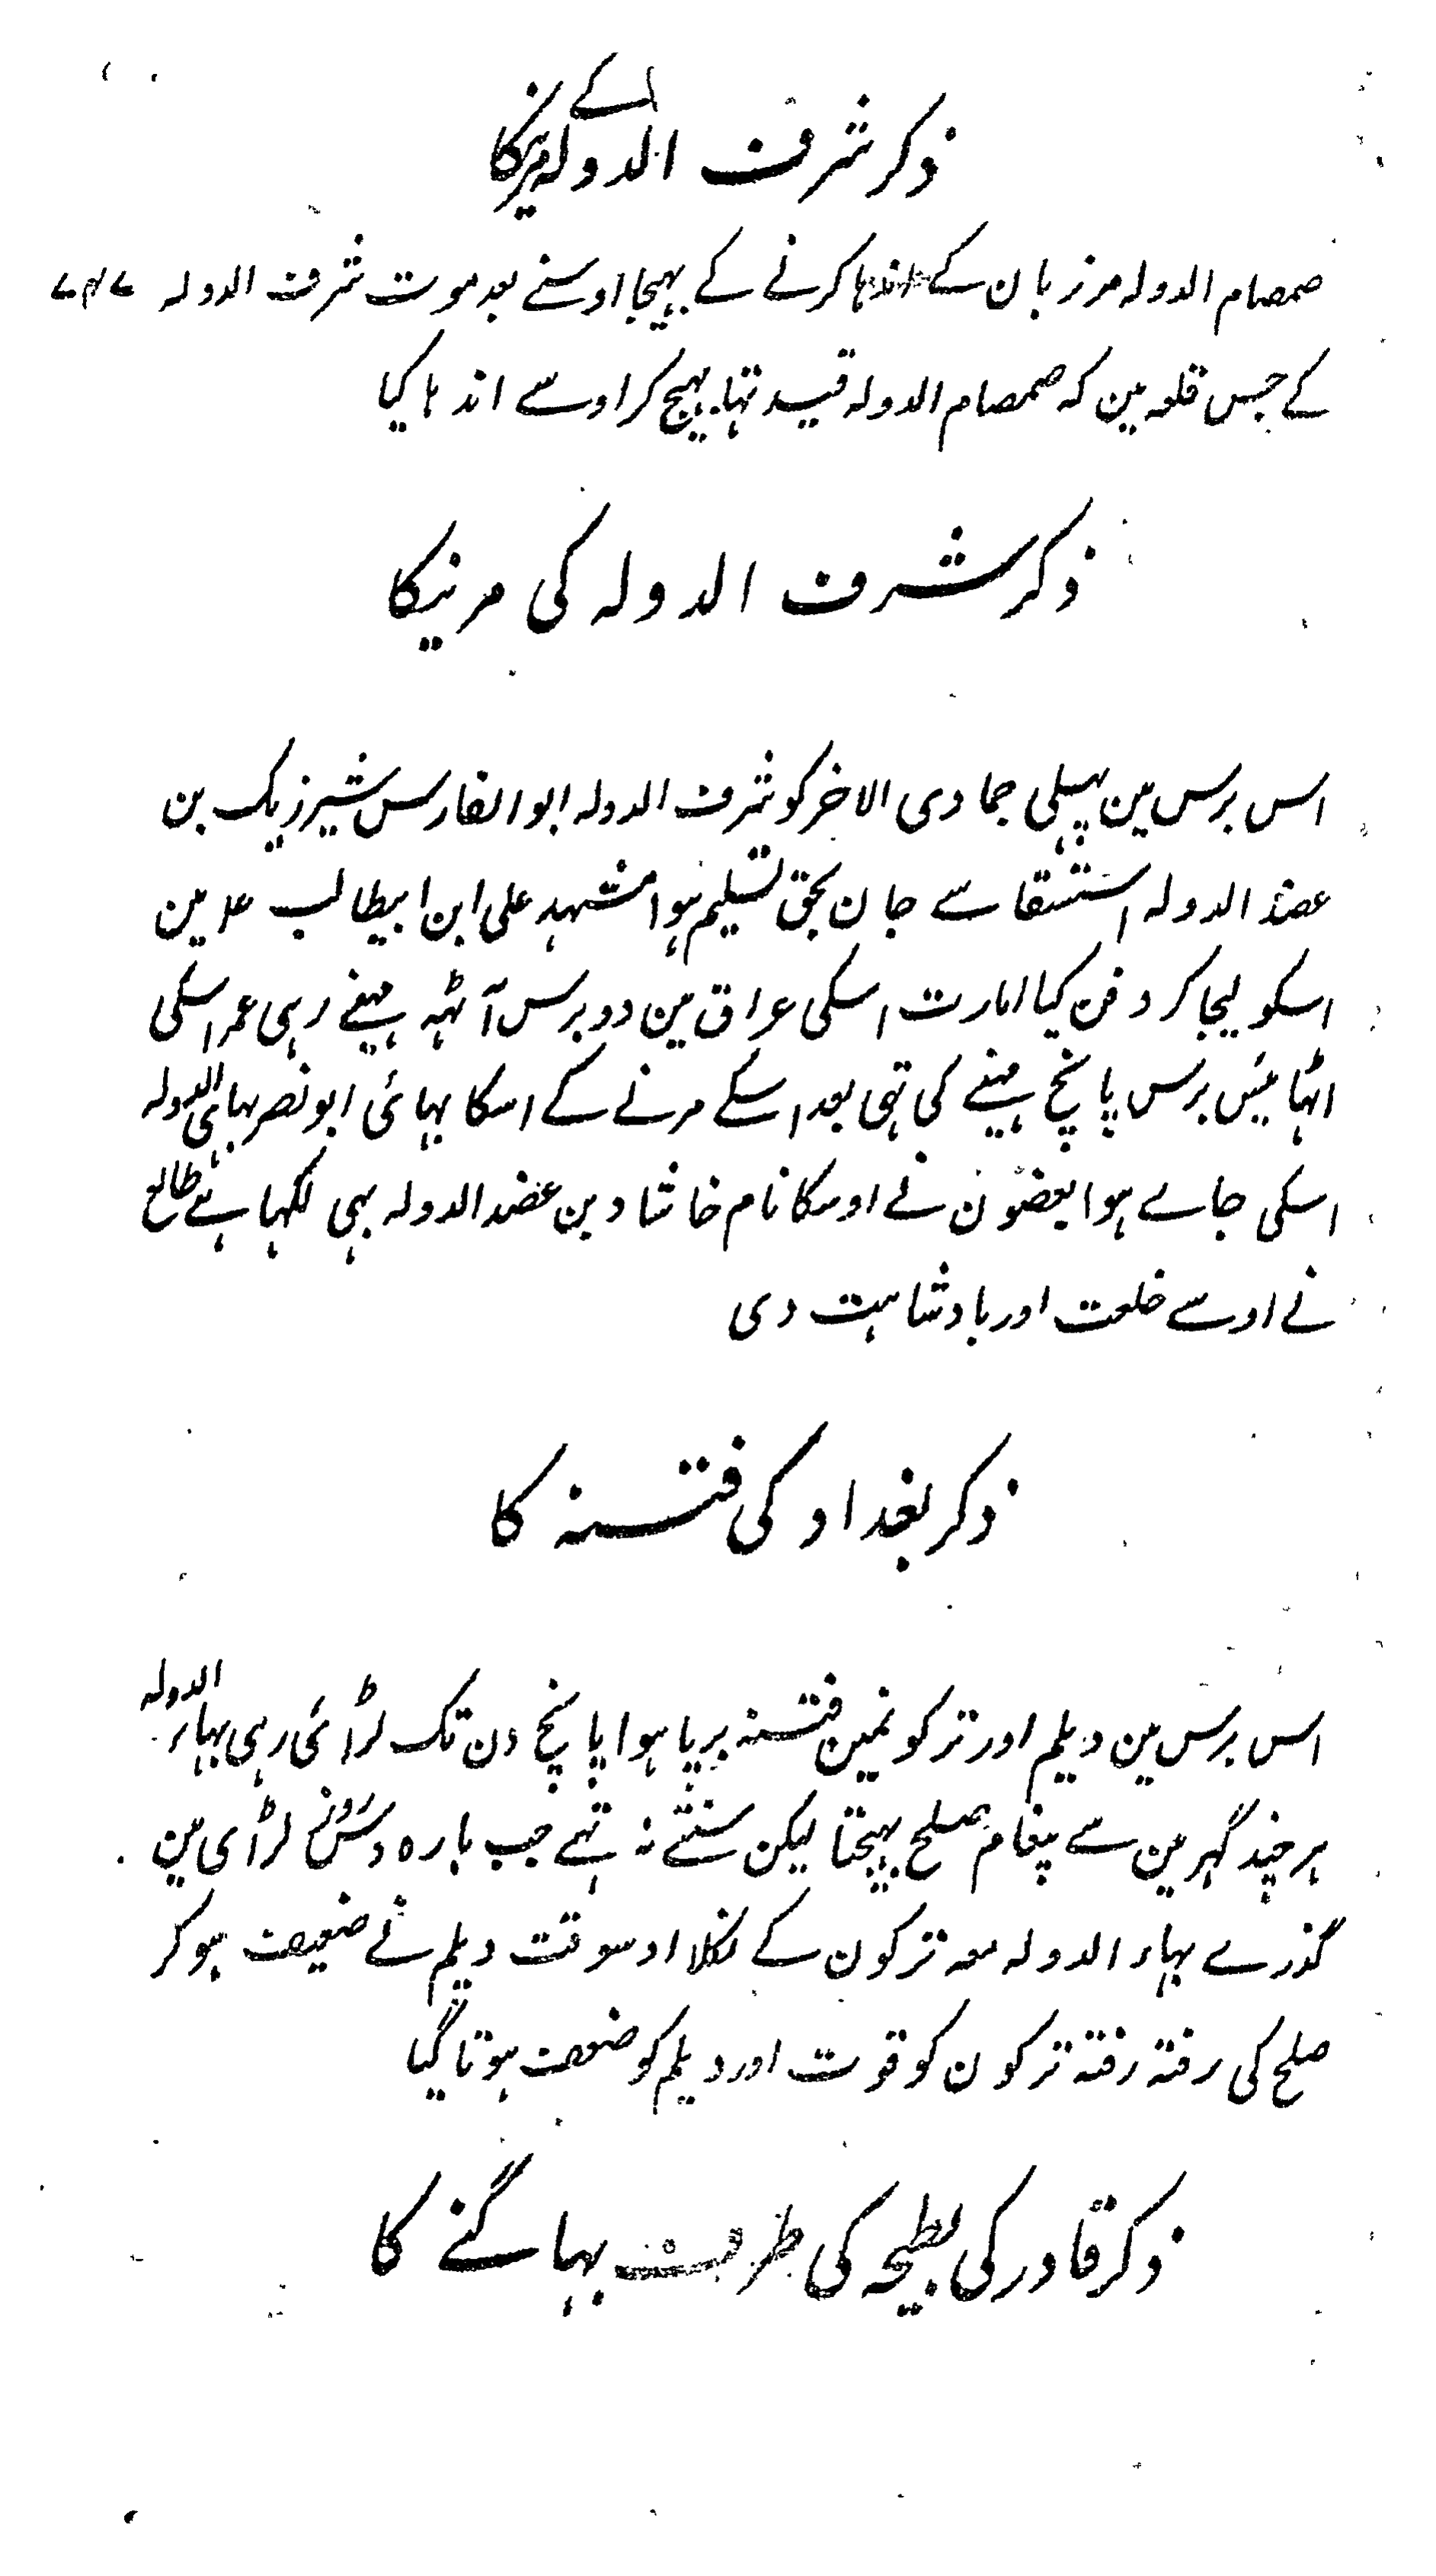 ذکر شرف الدولہ کے مرنیکا
صمصام الدولہ مرزبان کے اندہا کرنے کے بہیجا اوسنے بعد موت شرف الدولہ
کے جس قلعہ مین کہ صمصام الدولہ قید تہا بہیج کر اوسے اندہا کیا
ذکر شرف الدولہ کی مرنیکا
اس برس مین پہلی جمادی الاخر کو شرف الدولہ ابو الفارس شیرزیک بن
عضد الدولہ استسقا سے جان بحق تسلیم ہوا مشہد علی ابن ابیطالب ع مین
اسکو لیجا کر دفن کیا امارت اسکی عراق مین دو برس آٹہہ مہینے رہی عمر اسکی
اٹہائیس برس پانچ مہینے کی تہی بعد اسکے مرنے کے اسکا بہائی ابو نصر بہائی الدولہ
اسکی جاے ہوا بعضون نے اوسکا نام خاشاد بن عضد الدولہ بہی لکہا ہے طالع
نے اوسے خلعت اور بادشاہت دی
ذکر بغداد کی فتنہ کا
اس برس مین دیلم اور ترکونمین فتنہ برپا ہوا پانچ دن تک لڑائی رہی بہاء الدولہ
ہر چند گہر مین سے پیغام صلح بہیجتا لیکن سنتے نہ تہے جب بارہ روز لڑائی مین
گذرے بہاء الدولہ معہ ترکون کے نکلا اوسوقت دیلم نے ضعیف ہو کر
صلح کی رفتہ رفتہ ترکون کو قوت اور دیلم کو ضعف ہوتا گیا
ذکر قادر کی بطیحہ کی طرف بہاگنے کا